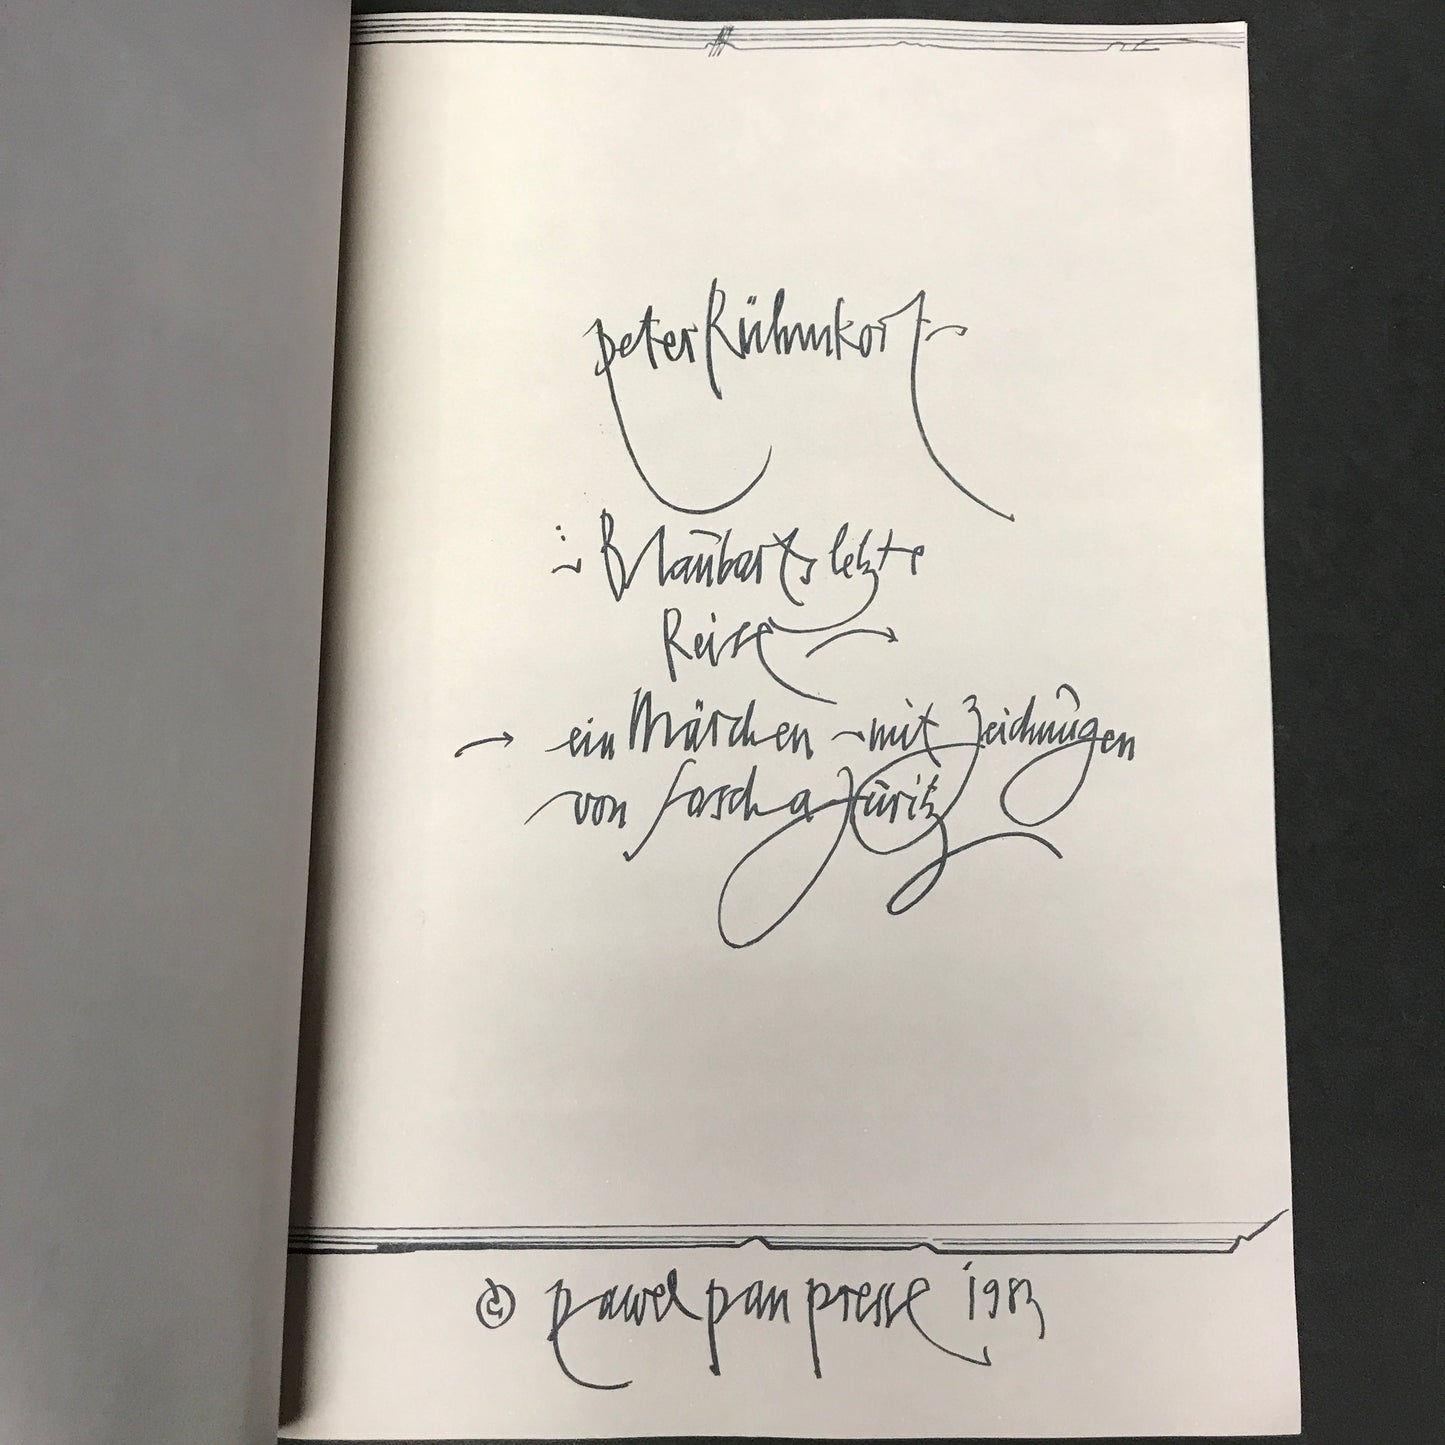 peter Rühmkorf
: Blaubarts letzte
Reise →
→ ein Märchen - mit Zeichnungen
von sascha Juritz
© pawel pan presse 1983